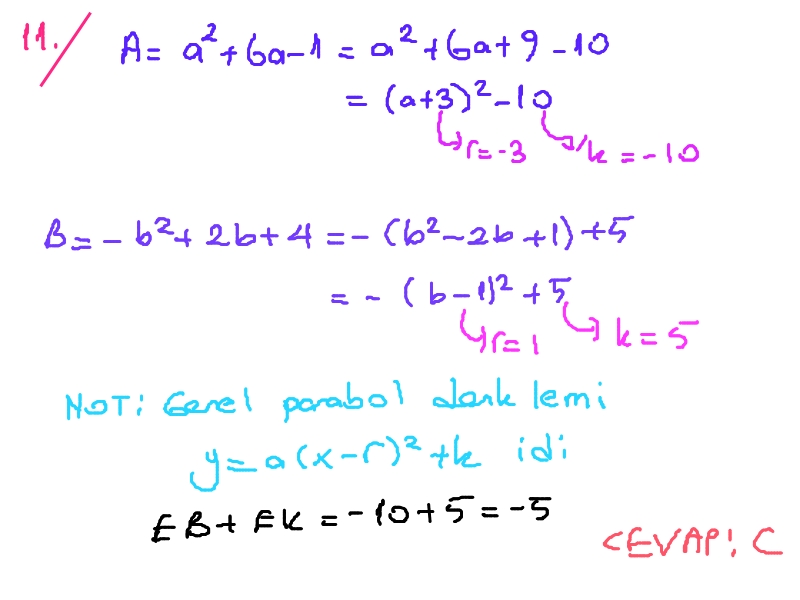 11. A = a² + 6a - 1 = a² + 6a + 9 - 10
= (a+3)² - 10
r = -3 k = -10
B = - b² + 2b + 4 = - (b² - 2b + 1) + 5
= - (b - 1)² + 5
r = 1 k = 5
NOT: Genel parabol denklemi
y = a(x - r)² + k idi
EB + EK = -10 + 5 = -5
CEVAP: C